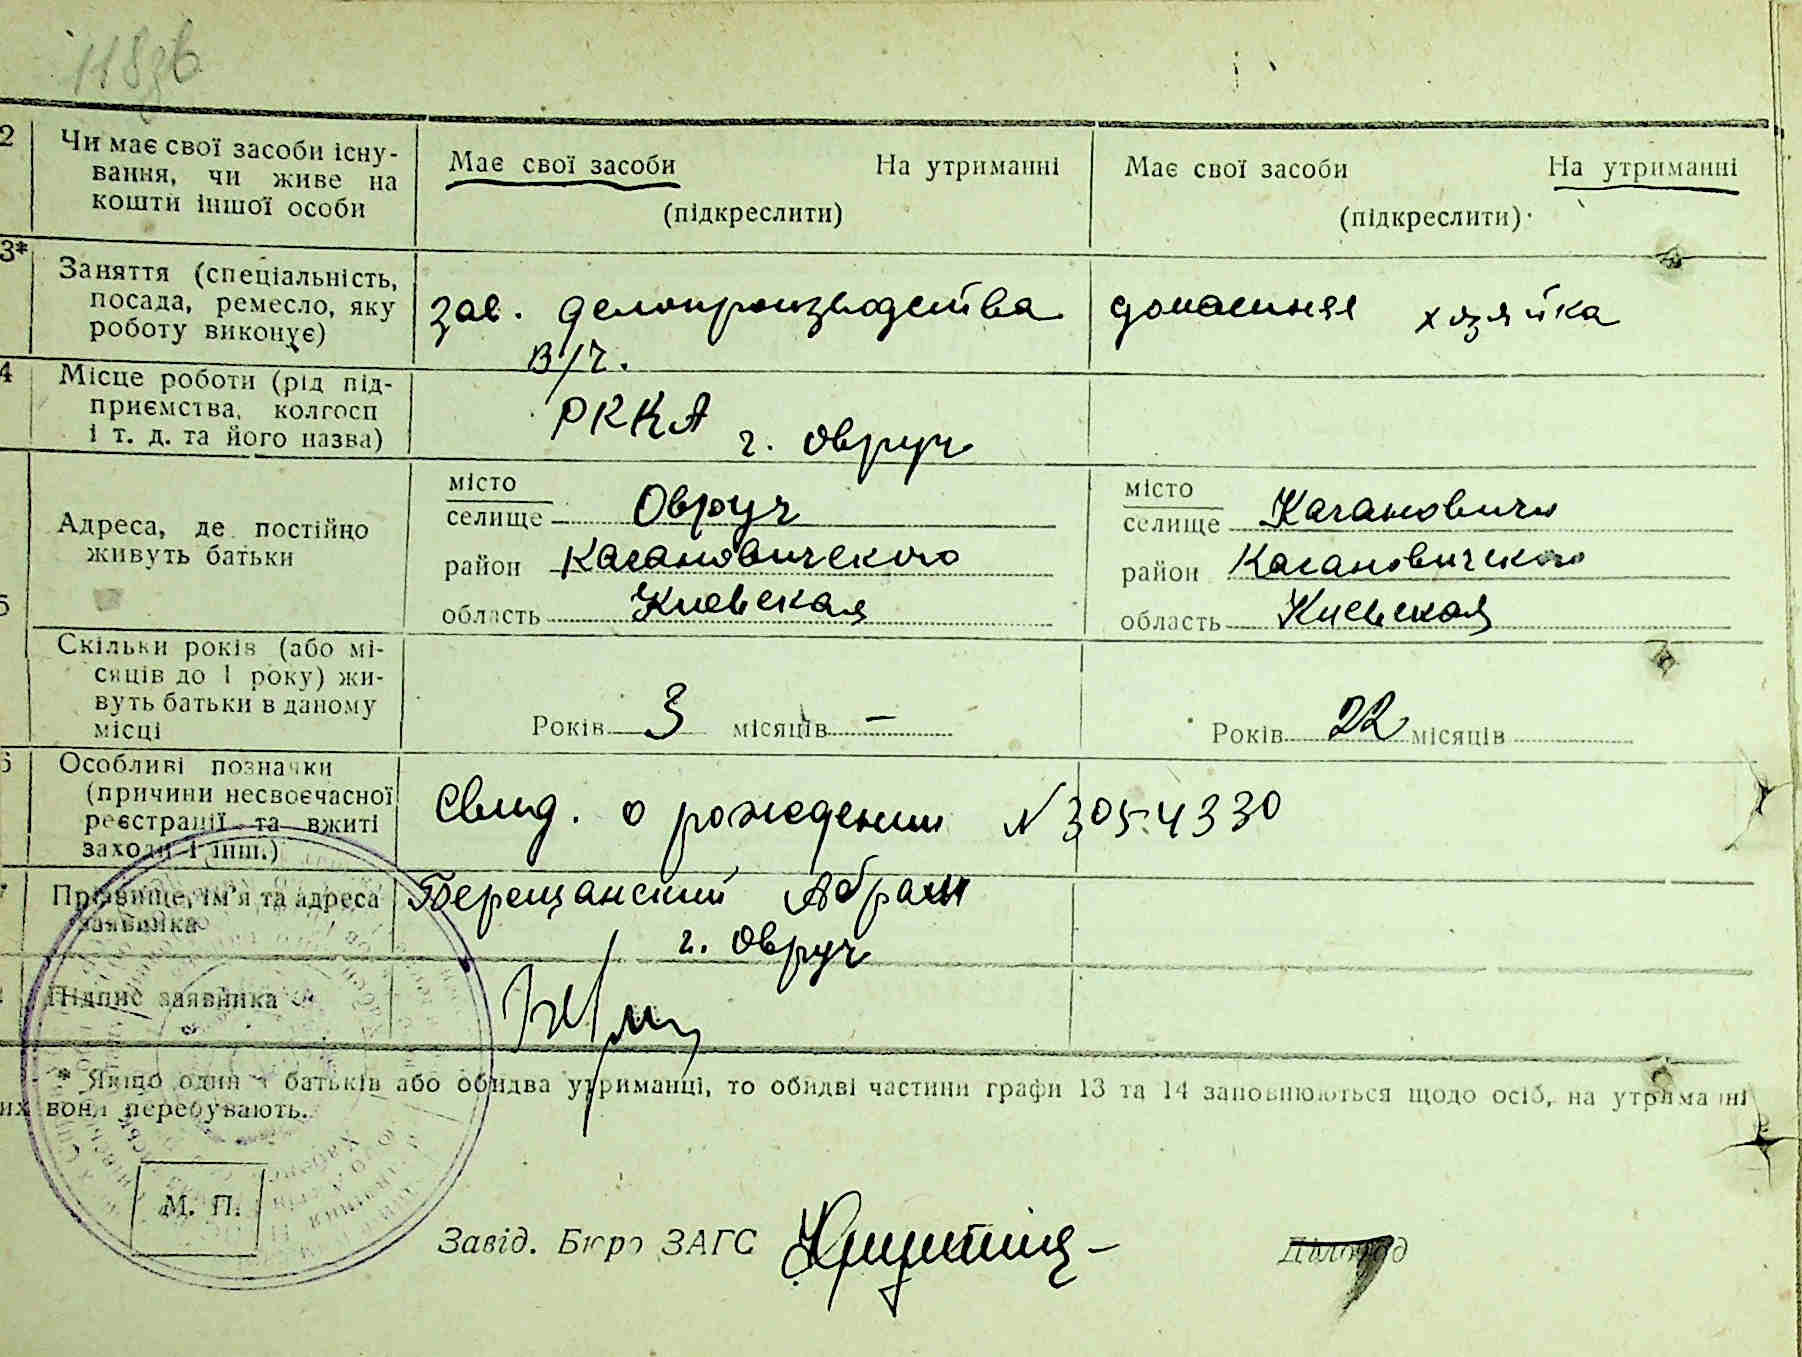 118зв
2 Чи має свої засоби існу-
вання, чи живе на
кошти іншої особи
Має свої засоби На утриманні
(підкреслити)
Має свої засоби На утриманні
(підкреслити)
3* Заняття (спеціальність,
посада, ремесло, яку
роботу виконує)
зав. делопроизводства
в/ч.
домашняя хозяйка
4 Місце роботи (рід під-
приємства, колгосп
і т. д. та його назва)
РККА г. Овруч
5 Адреса, де постійно
живуть батьки
місто
селище Овруч
район Кагановичского
область Киевская
місто
селище Кагановичи
район Кагановичского
область Киевская
Скільки років (або мі-
сяців до 1 року) жи-
вуть батьки в даному
місці
Років 3 місяців —
Років 22 місяців
6 Особливі позначки
(причини несвоєчасної
реєстрації та вжиті
заходи і інш.)
Свид. о рождении N 3054330
Прізвище, ім'я та адреса
заявника
Берещанский Абрам
г. Овруч
Підпис заявника
* Якщо один з батьків або обидва утриманці, то обидві частини графи 13 та 14 заповнюються щодо осіб, на утриманні
их вони перебувають.
М. П.
Завід. Бюро ЗАГС
Діловод